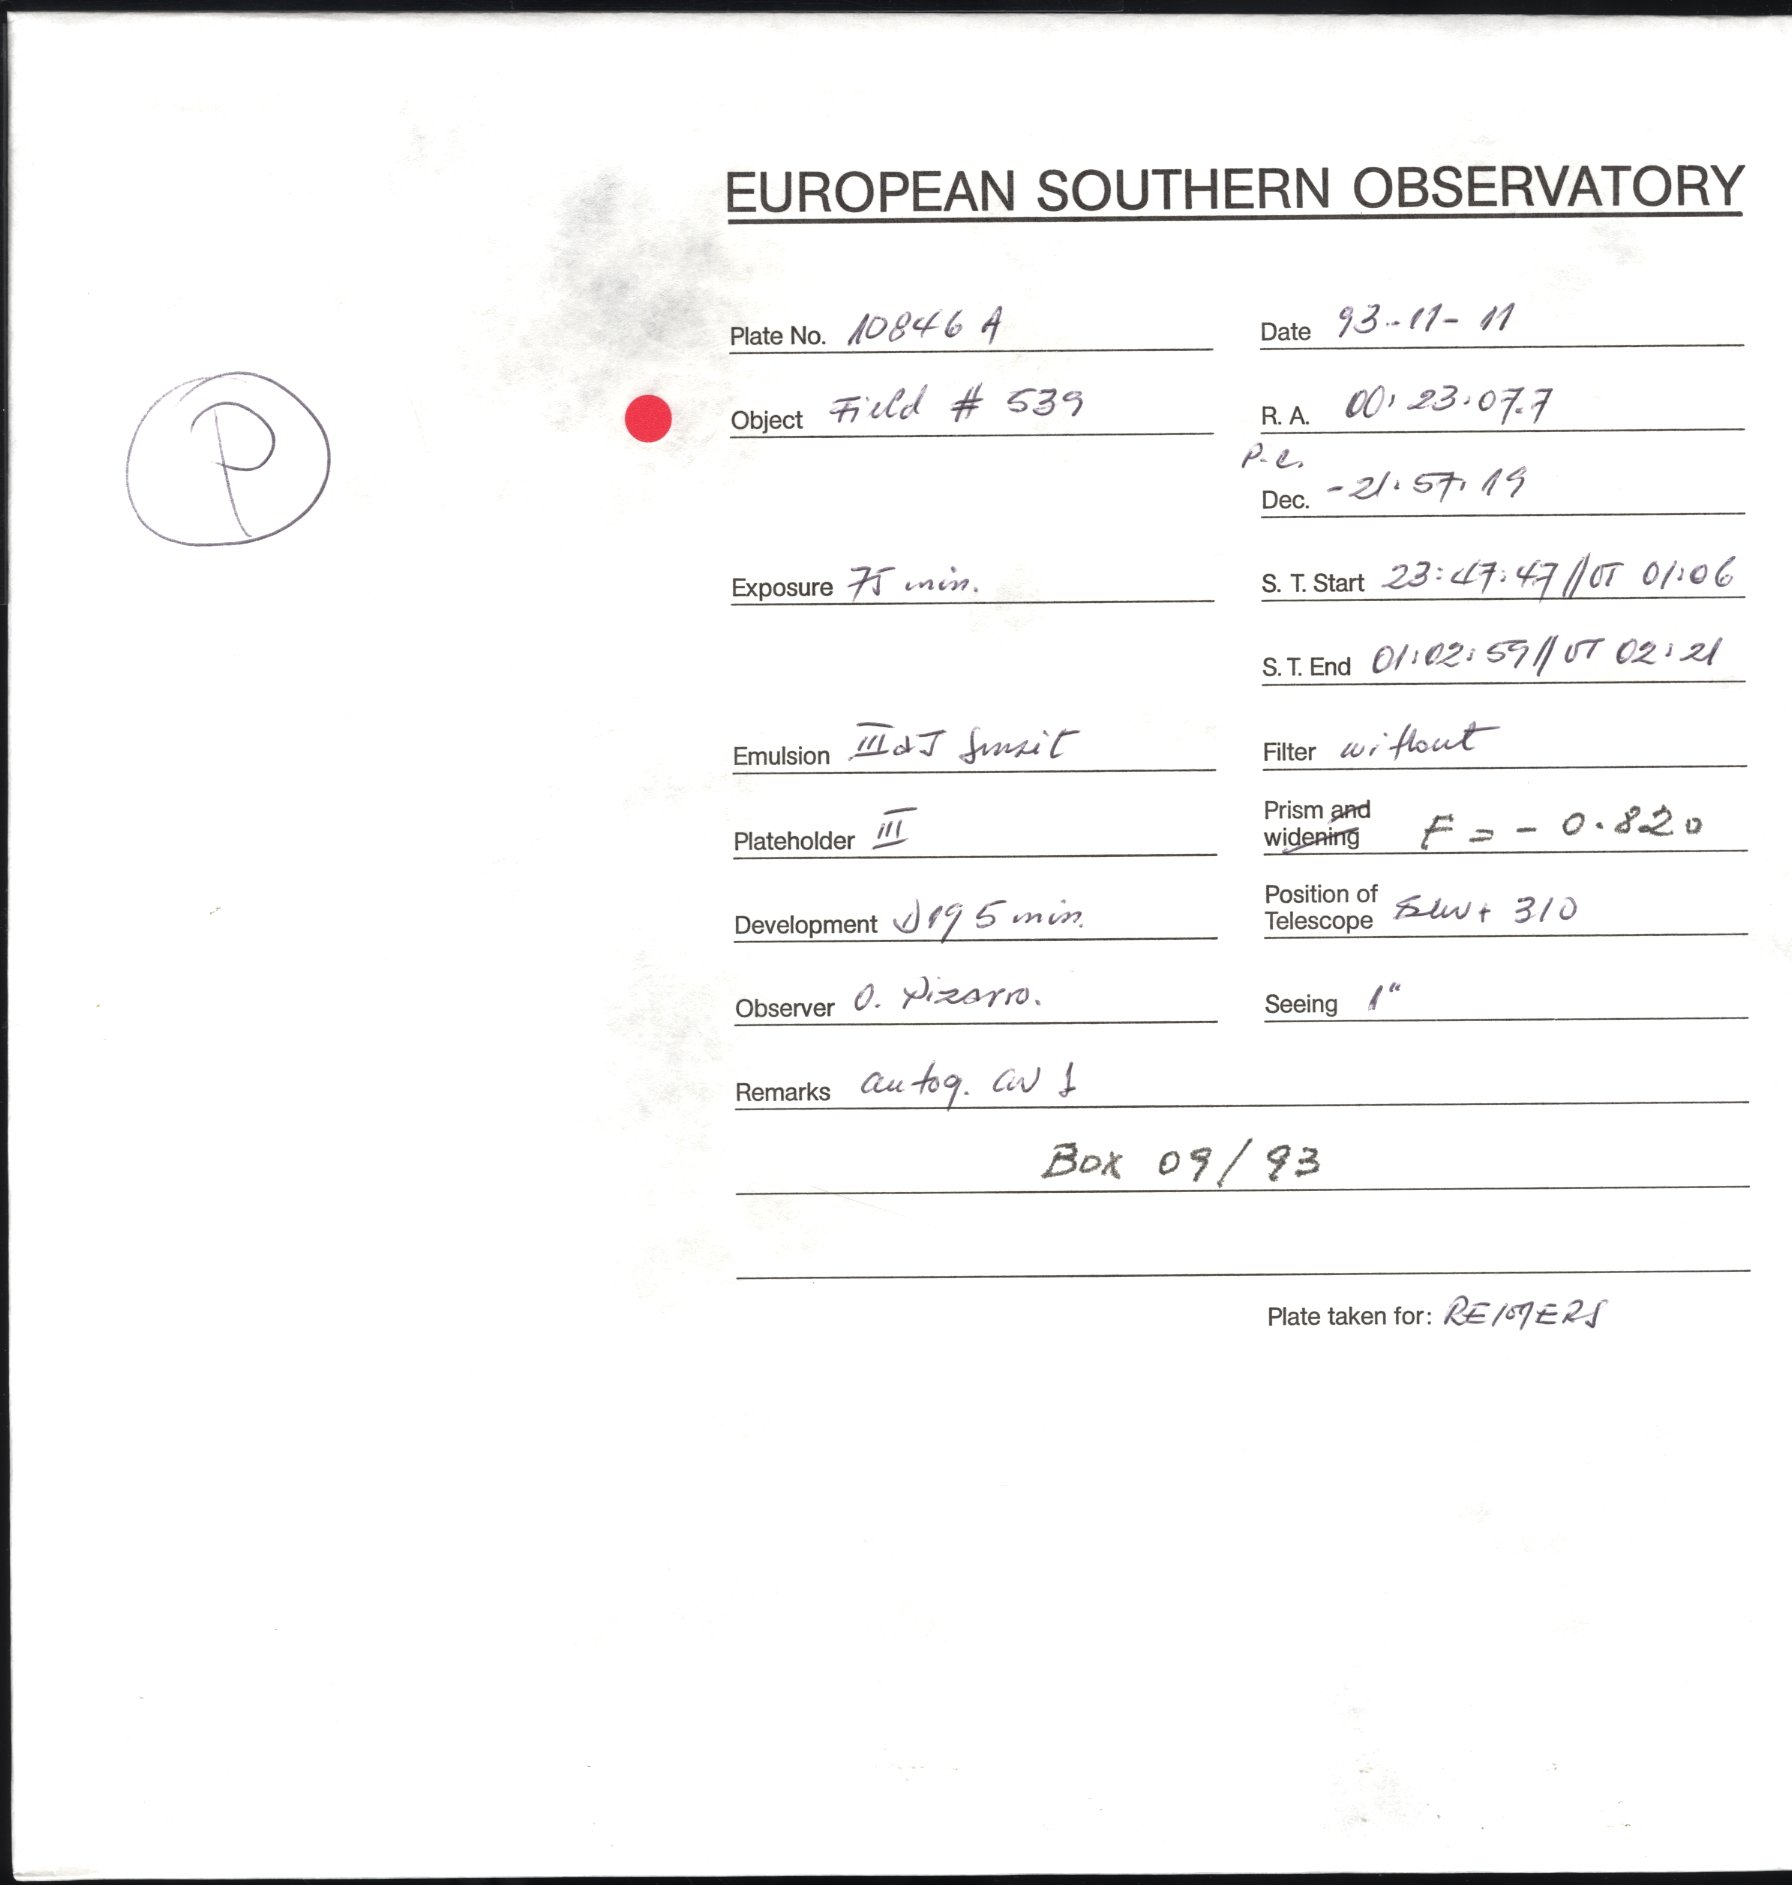 EUROPEAN SOUTHERN OBSERVATORY
Plate No. 10846 A
Date 93-11-11
P
Object Field # 539
R. A. 00:23:07.7
P.e.
Dec. -21:57:19
Exposure 75 min.
S. T. Start 23:47:47 // UT 01:06
S. T. End 01:02:59 // UT 02:21
Emulsion IIIaJ
Filter without
Plateholder III
Prism and
widening F = - 0.820
Development D19 5 min.
Position of
Telescope + 310
Observer O. Pizarro.
Seeing 1"
Remarks autog.
Box 09/93
Plate taken for: REIMERS